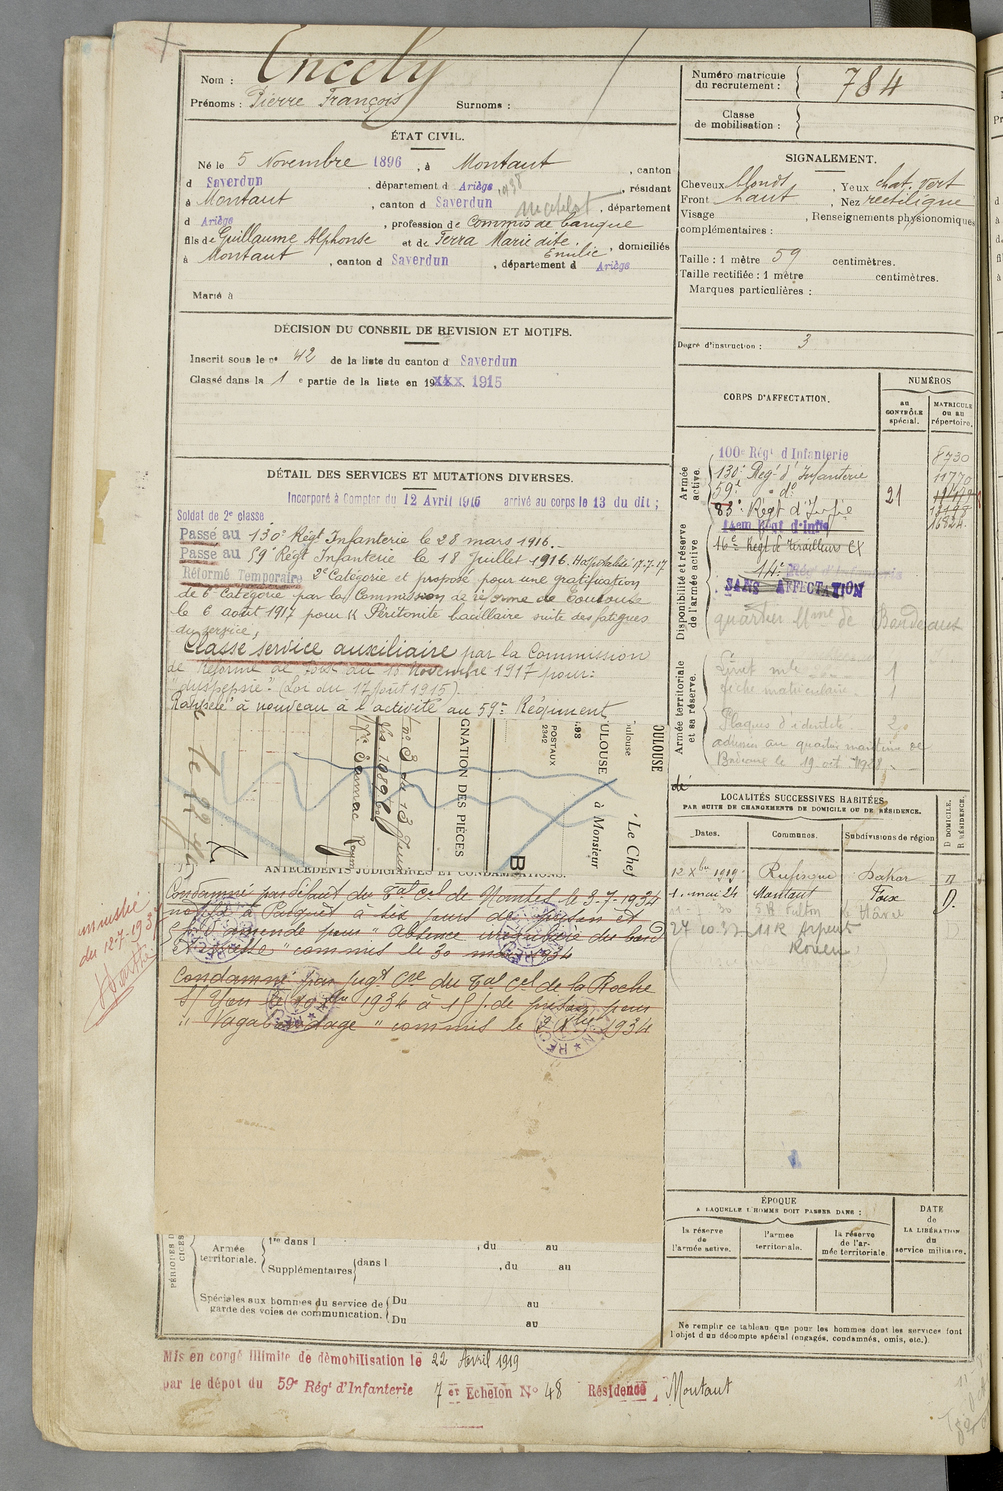 Nom : Encely
Prénoms : Pierre François Surnoms :
Numéro matricule du recrutement : 784
Classe de mobilisation :
ÉTAT CIVIL.
Né le 5 Novembre 1896, à Montaut, canton
d Saverdun, département d Ariège, résidant
à Montaut, canton d Saverdun, département
d Ariège, profession de Commis de banque
fils de Guillaume Alphonse et de Terra Marie dite Emilie, domiciliés
à Montaut, canton d Saverdun, département d Ariège
Marié à
SIGNALEMENT.
Cheveux blonds, Yeux chat. vert
Front haut, Nez rectiligne
Visage, Renseignements physionomiques
complémentaires :
Taille : 1 mètre 59 centimètres.
Taille rectifiée : 1 mètre centimètres.
Marques particulières :
Degré d'instruction : 3
DÉCISION DU CONSEIL DE REVISION ET MOTIFS.
Inscrit sous le n° 42 de la liste du canton d Saverdun
Classé dans la 1 e partie de la liste en 19xxx 1915
DÉTAIL DES SERVICES ET MUTATIONS DIVERSES.
Incorporé à Compter du 12 Avril 1915 arrivé au corps le 13 du dit ;
Soldat de 2e classe
Passé au 130e Régt Infanterie le 28 mars 1916.
Passé au 59e Régt Infanterie le 18 Juillet 1916. Hospitalisé 17-7-17
Réformé Temporaire 2e Catégorie et proposé pour une gratification
de 6e Catégorie par la Commission de réforme de Toulouse
le 6 août 1917 pour « Péritonite bacillaire suite des fatigues
du service,
Classé service auxiliaire par la Commission
de Réforme de Foix du 10 Novembre 1917 pour :
"dyspepsie" (Loi du 17 Août 1915)
Rappelé à nouveau à l'activité au 59e Régiment
CORPS D'AFFECTATION.
NUMÉROS
au CONTRÔLE spécial.
MATRICULE ou au répertoire.
Armée active.
100e Régt d'Infanterie 8730
130e Régt d'Infanterie 11770
59e do
83e Régt d'Infie
21
Disponibilité et réserve de l'armée active
14em Régt d'Infie
16e Régt de Tirailleurs
SANS AFFECTATION
quartier Mme de Bordeaux
Armée territoriale et sa réserve.
Livret mle 1
fiche matriculaire 1
Plaques d'identité 2
adressés au quartier maritime de
Bordeaux le 19 oct.
GNATION DES PIÈCES
POSTAUX
à Monsieur
Le Chef
OULOUSE
ANTÉCÉDENTS JUDICIAIRES ET CONDAMNATIONS.
Condamné par défaut du Tal Cel de Nantes le 3.7.1934
notifié à Parquet à six jours de prison et
amende pour "Absence irrégulière du bord
" commis le 30 mars 1934
Condamné par Jugt Cre du Tal Cel de la Roche
s/ Yon le 1934 à 15 j. de prison pour
" Vagabondage " commis le 1934
amnistié
du 12-7-1937
LOCALITÉS SUCCESSIVES HABITÉES
PAR SUITE DE CHANGEMENTS DE DOMICILE OU DE RÉSIDENCE.
Dates. Communes. Subdivisions de région D DOMICILE, R RÉSIDENCE.
12 Xbre 1919 Rufisque Dakar
1. mai 24 Montaut Foix D.
Fulton le Hâvre
Rouen
ÉPOQUE
A LAQUELLE L'HOMME DOIT PASSER DANS :
la réserve de l'armée active.
l'armée territoriale.
la réserve de l'armée territoriale.
DATE de LA LIBÉRATION du service militaire.
Ne remplir ce tableau que pour les hommes dont les services font
l'objet d'un décompte spécial (engagés, condamnés, omis, etc.).
Armée territoriale. 1re dans l , du au
Supplémentaires dans l , du au
Spéciales aux hommes du service de garde des voies de communication. Du au
Du au
Mis en congé illimité de démobilisation le 22 Avril 1919
par le dépôt du 59e Régt d'Infanterie 7 er Echelon No 48 Résidence Montaut